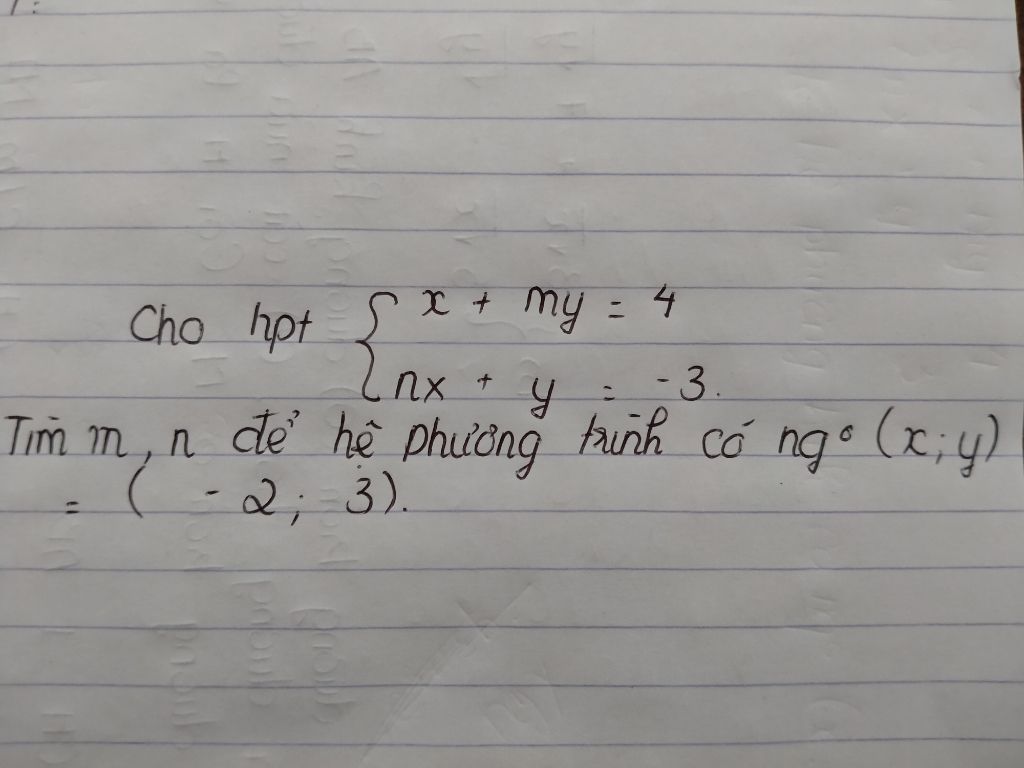 Cho hpt { x + my = 4
nx + y = -3.
Tìm m, n để hệ phương trình có ng° (x; y)
= ( -2; 3).